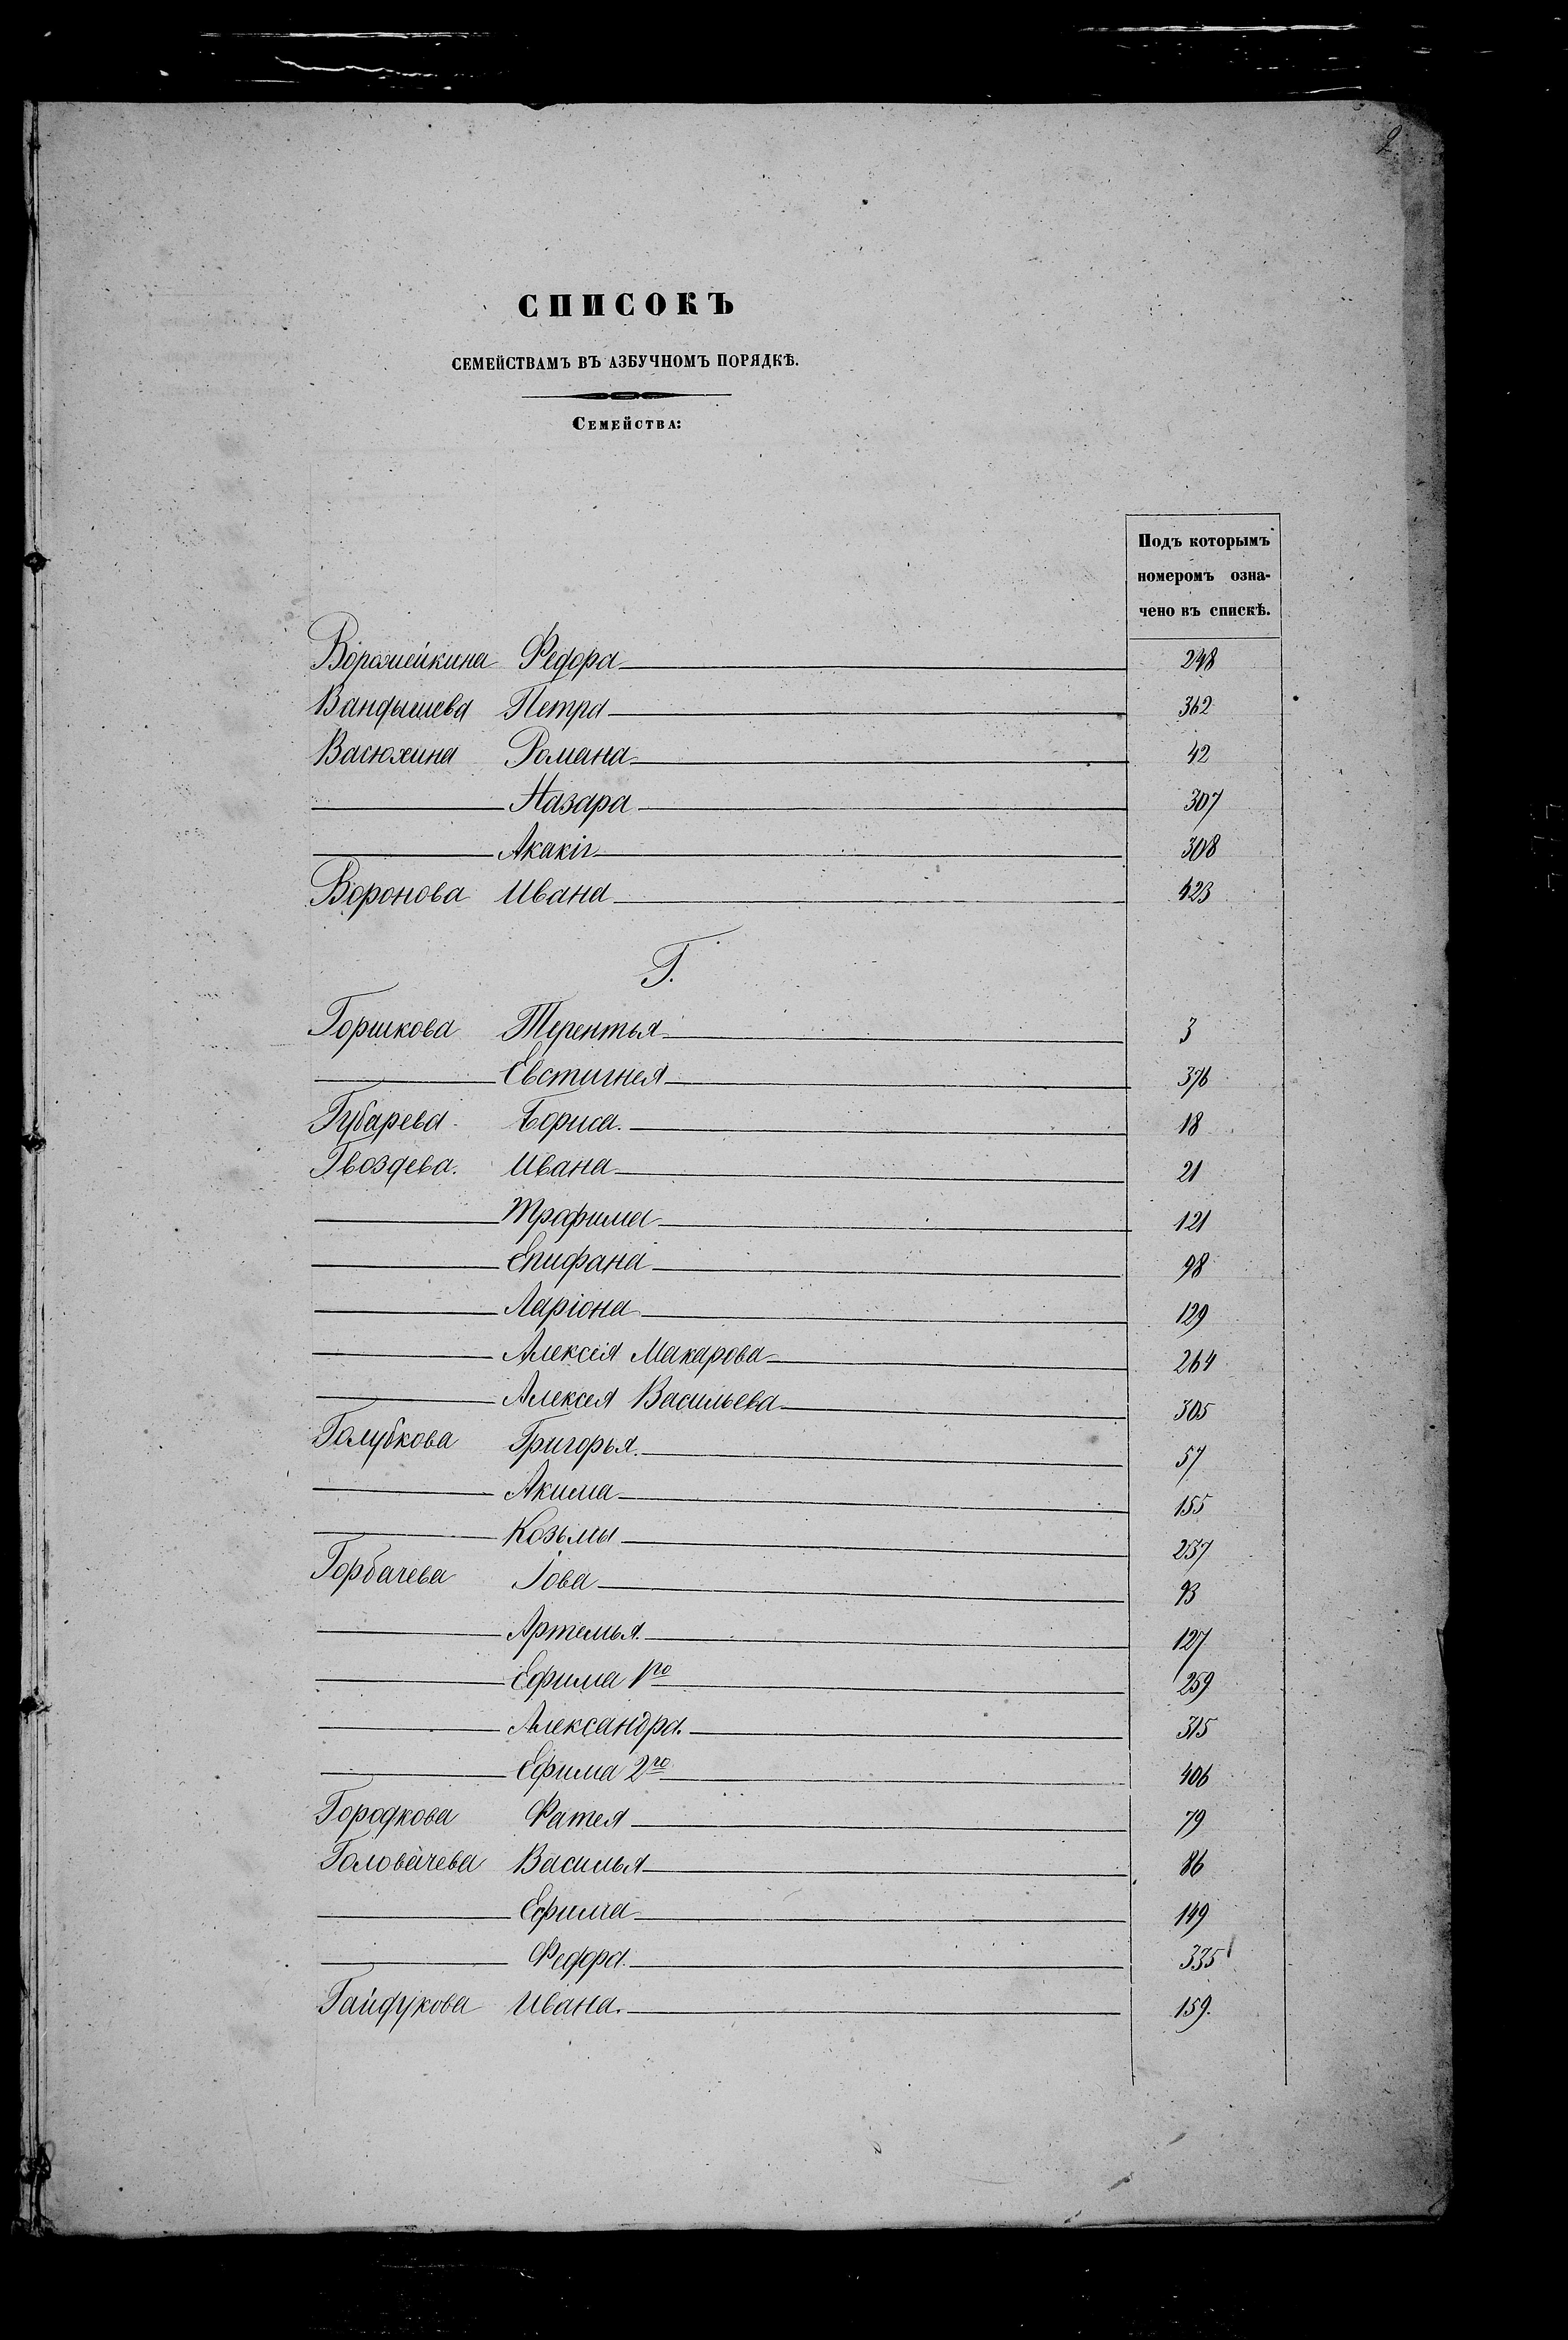 2
СПИСОКЪ
СЕМЕЙСТВАМЪ ВЪ АЗБУЧНОМЪ ПОРЯДКѢ.
Семейства:
Подъ которымъ
номеромъ озна-
чено въ спискѣ.
Ворожейкина Федора 248
Вандышева Петра 362
Васюхина Романа 42
Назара 307
Акакія 308
Воронова Ивана 423
Г.
Горшкова Терентья 3
Евстигнея 376
Губарева Бориса. 18
Гвоздева. Ивана 21
Трофима 121
Епифана 98
Ларіона 129
Алексѣя Макарова 264
Алексея Васильева 305
Голубкова Григорья. 57
Акима 155
Козьмы 257
Горбачева Іова 93
Артемья. 127
Ефима 1го 259
Александра. 315
Ефима 2го 406
Городкова Фатея 79
Головачева Василья 86
Ефима 149
Федора. 335
Гайдукова Ивана. 159.